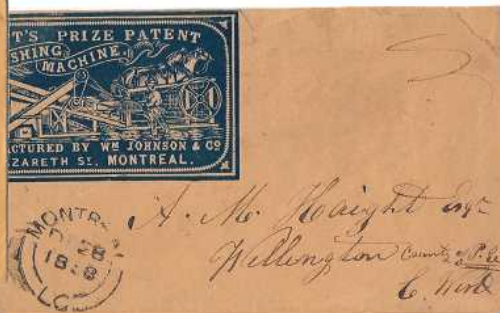 T'S PRIZE PATENT
SHING MACHINE.
ACTURED BY WM JOHNSON & CO
ZARETH ST. MONTREAL.
MONTR
28
L.C
A. M. Haight Esqr
Wellington County of P. E
C. West